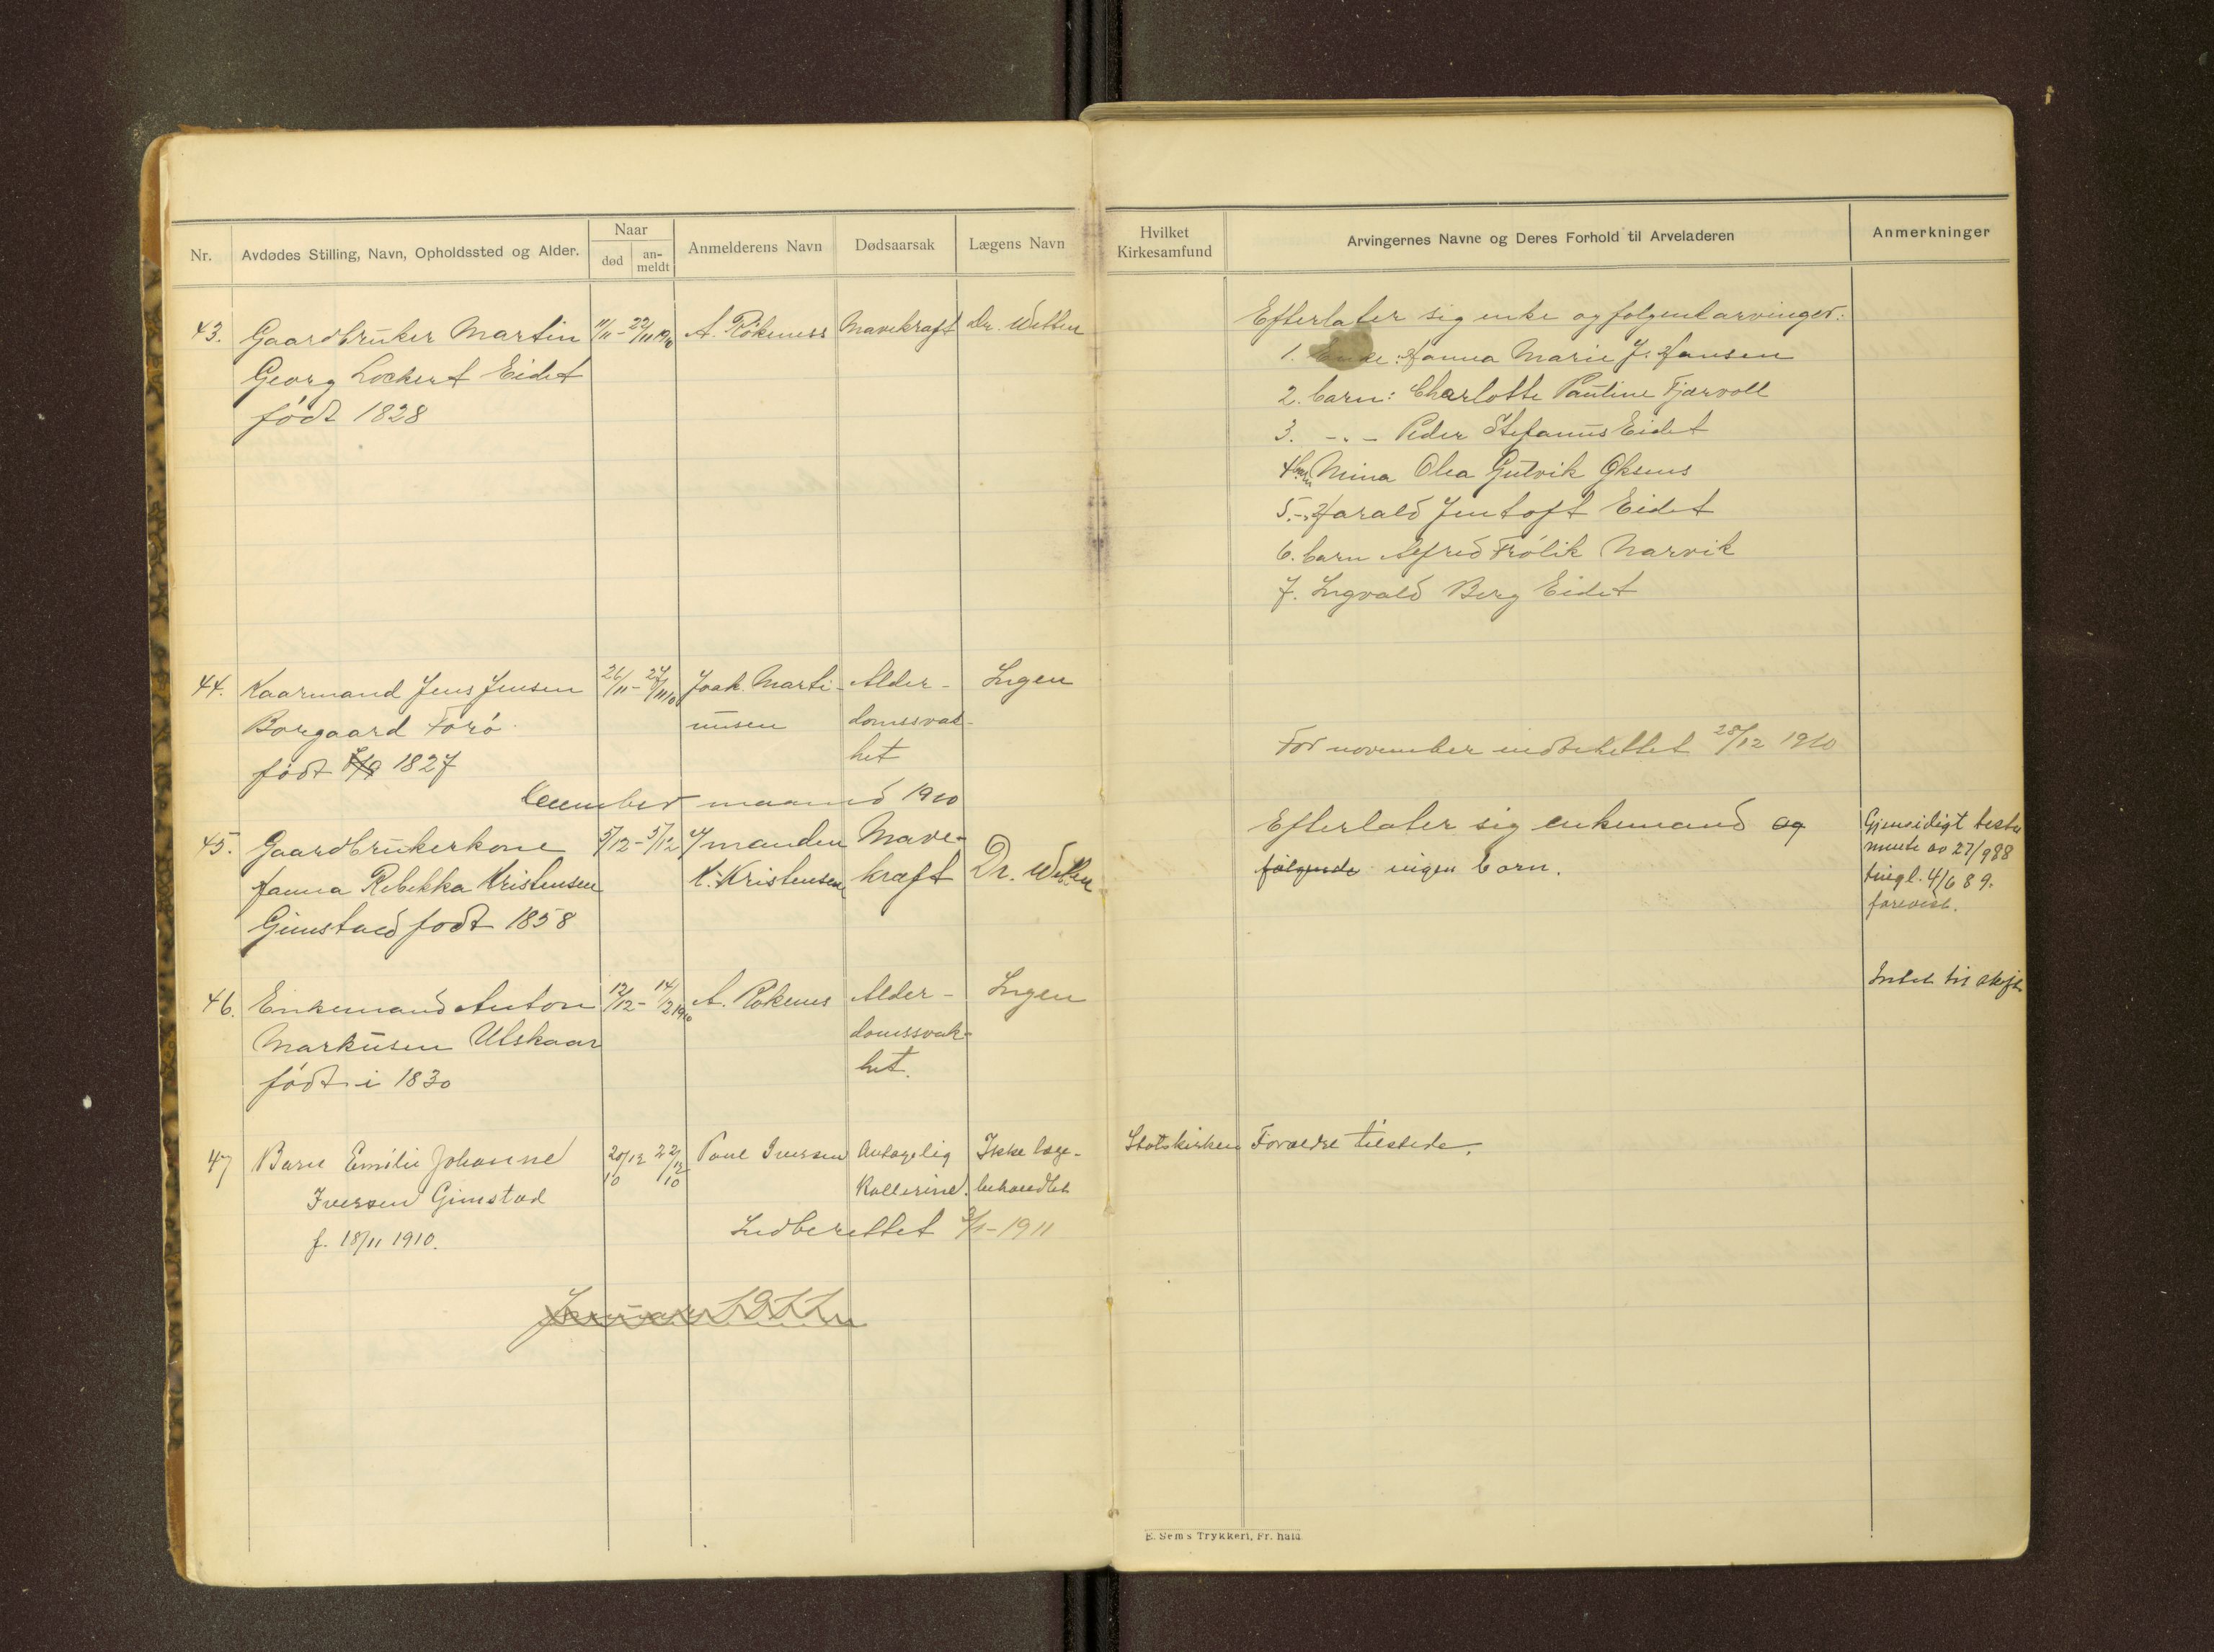 Nr.
Avdødes Stilling, Navn, Opholdssted og Alder.
Naar
død
an-
meldt
Anmelderens Navn
Dødsaarsak
Lægens Navn
Hvilket
Kirkesamfund
Arvingernes Navne og Deres Forhold til Arveladeren
Anmerkninger
43. Gaardbruker Martin 11/11 - 22/11 1910 A. Rökeness Mavekraft Dr. Wetten
Georg Lockert Eidet
född 1828
Efterlater sig enke og følgend arvinger:
1. Enke: Hanna Marie J. Hansen
2. barn: Charlotte Pauline Fjærvoll
3. - " - Peder Stefanus Eidet
4 barn Mina Olea Gutvik Øksnes
5. - " Harald Jentoft Eidet
6. barn Alfred Frölik Narvik
7. Ingvald Berg Eidet
44. Kaarmand Jens Jensen 26/11 - 27/11 10 Joak. Marti- Alder- Ingen
Borgaard Forö nusen domssvak-
født 1827 het
For november indberettet 28/12 1910
December maaned 1910
45. Gaardbrukerkone 5/12 - 5/12 manden Mave- Dr. Wetten
Hanna Rebekka Kristensen K. Kristensen kræft
Gimstad født 1858
Efterlater sig enkemand og
følgende ingen barn.
Gjensidigt testa
mente av 27/9 88
tingl. 4/6 89.
forevist.
46. Enkemand Anton 12/12 - 14/12 1910 A. Rökenes Alder- Ingen
Markusen Ulskaar domssvak-
født i 1830 het.
Intet til skifte
47 Barn Emilie Johanne 20/12 10 22/12 10 Paul Iversen Antagelig Ikke læge-
Iversen Gimstad Kollerine. behandlet
f. 18/11 1910.
Statskirken Forældre tilstede.
Indberettet 3/1 - 1911
Januar 1911
E. Sem's Trykkeri, Fr.hald